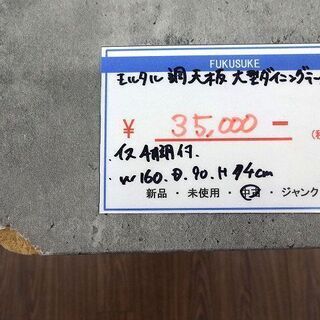 FUKUSUKE
モルタル調天板 大型ダイニングテー
¥ 35,000-
(税
・イス4脚付.
W160.D.90.H74cm
新品・未使用・中古・ジャンク